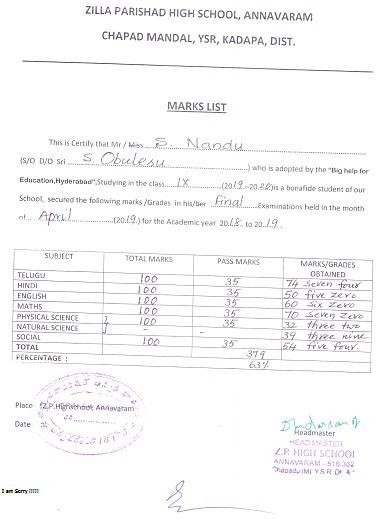 ZILLA PARISHAD HIGH SCHOOL, ANNAVARAM
CHAPAD MANDAL, YSR, KADAPA, DIST.
MARKS LIST
This is Certify that Mr / Miss S. Nandu
(S/O D/O Sri S. Obulesu) who is adopted by the "Big help for
Education,Hyderabad",Studying in the class IX (2019-2020)is a bonafide student of our
School, secured the following marks /Grades in his/her final Examinations held in the month
of April (2019) for the Academic year 2018 to 2019.
SUBJECT TOTAL MARKS PASS MARKS MARKS/GRADES OBTAINED
TELUGU 100 35 74 seven four
HINDI 100 35 50 five zero
ENGLISH 100 35 60 six zero
MATHS 100 35 70 seven zero
PHYSICAL SCIENCE } 100 35 32 three two
NATURAL SCIENCE - - 39 three nine
SOCIAL 100 35 54 five four
TOTAL 379
PERCENTAGE : 63%
Place : Z.P.High school, Annavaram
Date
Headmaster
HEAD MASTER
Z.P. HIGH SCHOOL
ANNAVARAM - 516 302
Chapadu (M) Y.S.R. Dt. A
I am Sorry !!!!!